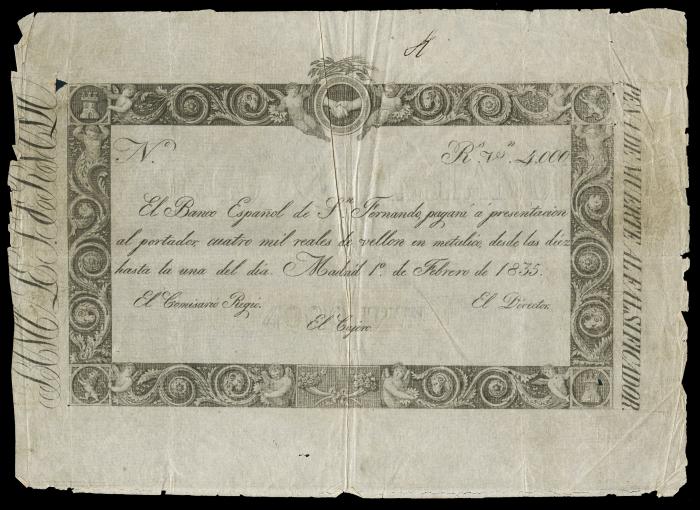 N.º R.ˢ Vⁿ. 4,000
El Banco Español de S.ⁿ Fernando, pagará á presentacion
al portador, cuatro mil reales de vellon en metalico, desde las diez
hasta la una del dia. Madrid 1º. de Febrero de 1835.
El Comisario Regio. El Director.
El Cajero.
PENA DE MUERTE AL FALSIFICADOR.